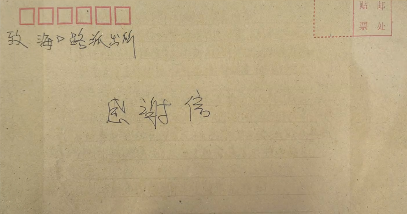 贴邮
票处
致 海口路派出所
感谢信